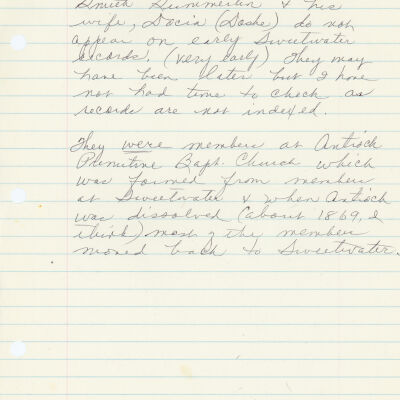 Smith Hummerlin & his
wife, Docia (Doshe) do not
appear on early Sweetwater
records. (very early) They may
have been later but I have
not had time to check as
records are not indexed.
They were members at Antioch
Primitive Bapt. Church which
was formed from members
at Sweetwater & when Antioch
was dissolved (about 1869, I
think) most of the members
moved back to Sweetwater.